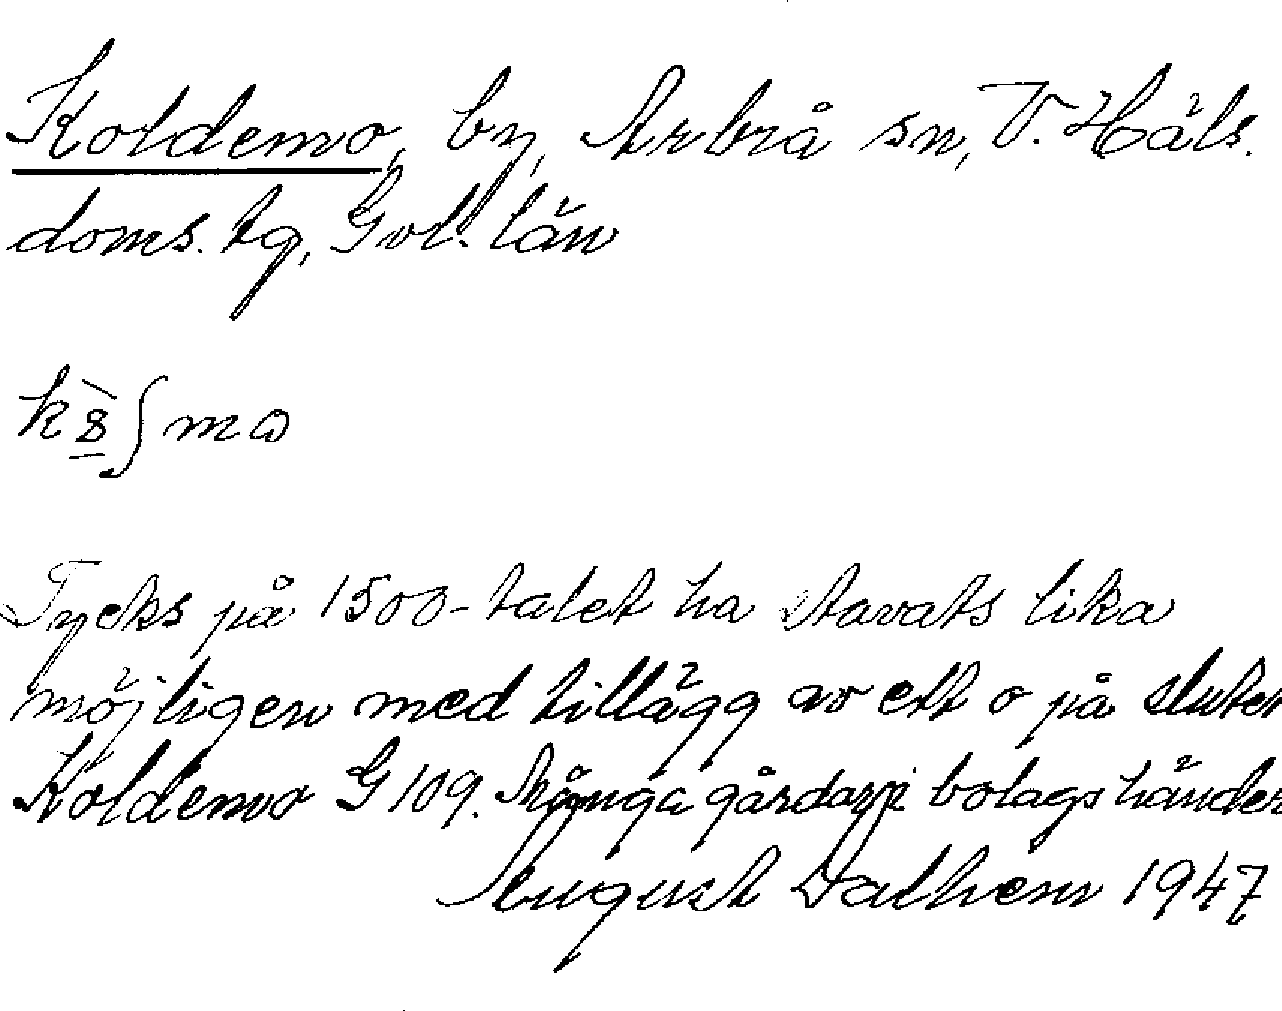 Koldemo, by, Arbrå sn, V. Häls.
doms. tg, Gvl. län
Tycks på 1500-talet ha stavats lika
möjligen med tillägg av ett o på slutet
Koldemo G 109. Många gårdar i bolagshänder
August Dalhem 1947